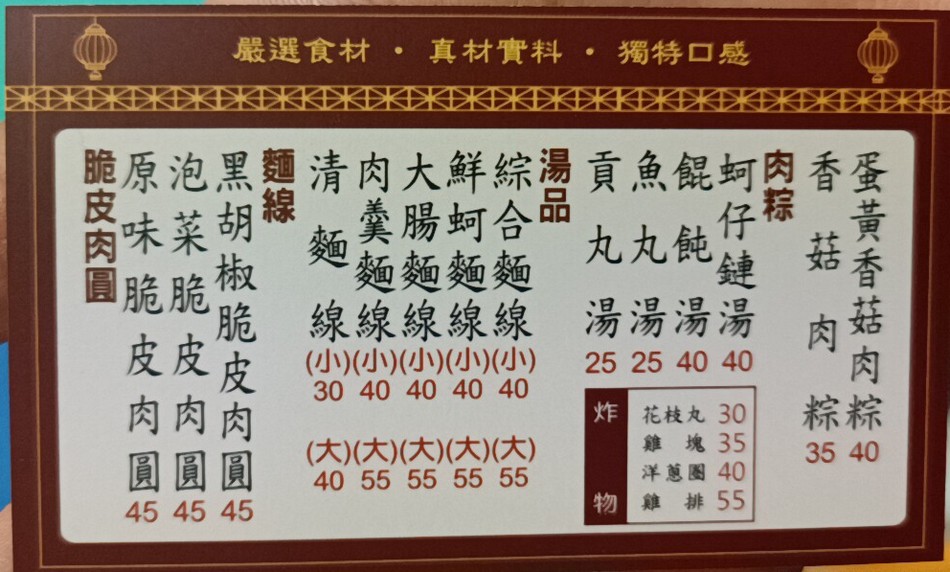 嚴選食材・真材實料・獨特口感
脆皮肉圓
原味脆皮肉圓 45
泡菜脆皮肉圓 45
黑胡椒脆皮肉圓 45
麵線
清麵線 (小) 30 (大) 40
肉羹麵線 (小) 40 (大) 55
大腸麵線 (小) 40 (大) 55
鮮蚵麵線 (小) 40 (大) 55
綜合麵線 (小) 40 (大) 55
湯品
貢丸湯 25
魚丸湯 25
餛飩湯 40
蚵仔鏈湯 40
炸物
花枝丸 30
雞塊 35
洋蔥圈 40
雞排 55
肉粽
香菇肉粽 35
蛋黃香菇肉粽 40